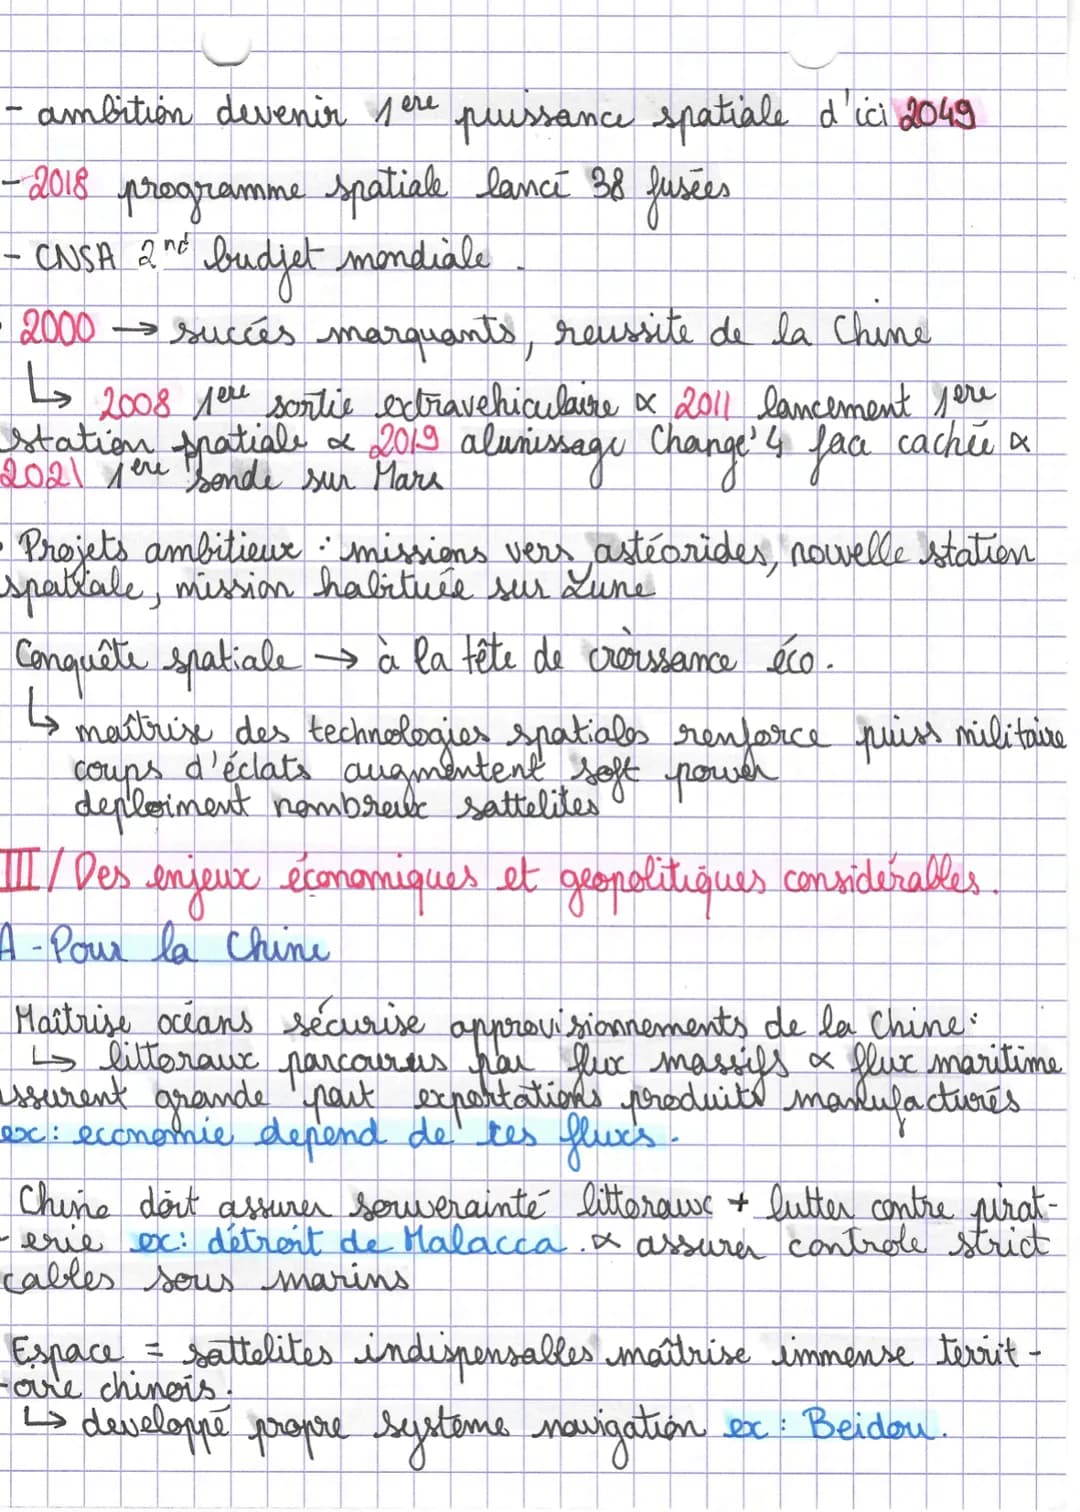 - ambition devenir 1ere puissance spatiale d'ici 2049
- 2018 programme spatiale lancé 38 fusées
- CNSA 2nd budget mondiale.
- 2000 → succés marquants, reussite de la Chine
↳ 2008 1ere sortie extravehiculaire & 2011 lancement 1ere
station spatiale & 2019 alunissage Change'4 face cachée &
2021 1ère sonde sur Mars
- Projets ambitieux : missions vers astéorides, nouvelle station
spatiale, mission habituée sur Lune
Conquête spatiale → à la tête de croissance éco.
↳ maîtrise des technologies spatiales renforce puiss militaire
coups d'éclats augmentent soft power
deploiment nombreux sattelites
III / Des enjeux économiques et geopolitiques considérables.
A - Pour la Chine
Maîtrise océans sécurise approvisionnements de la Chine :
↳ littoraux parcourus par flux massifs & flux maritime
assurent grande part exportations produits manufacturés
ex : economie depend de ces fluxs.
Chine doit assurer souverainté littoraux + lutter contre pirat-
-erie ex : détroit de Malacca. & assurer controle strict
cables sous marins
Espace = sattelites indispensables maîtrise immense territ-
-oire chinois.
↳ developpé propre systeme navigation ex : Beidou.